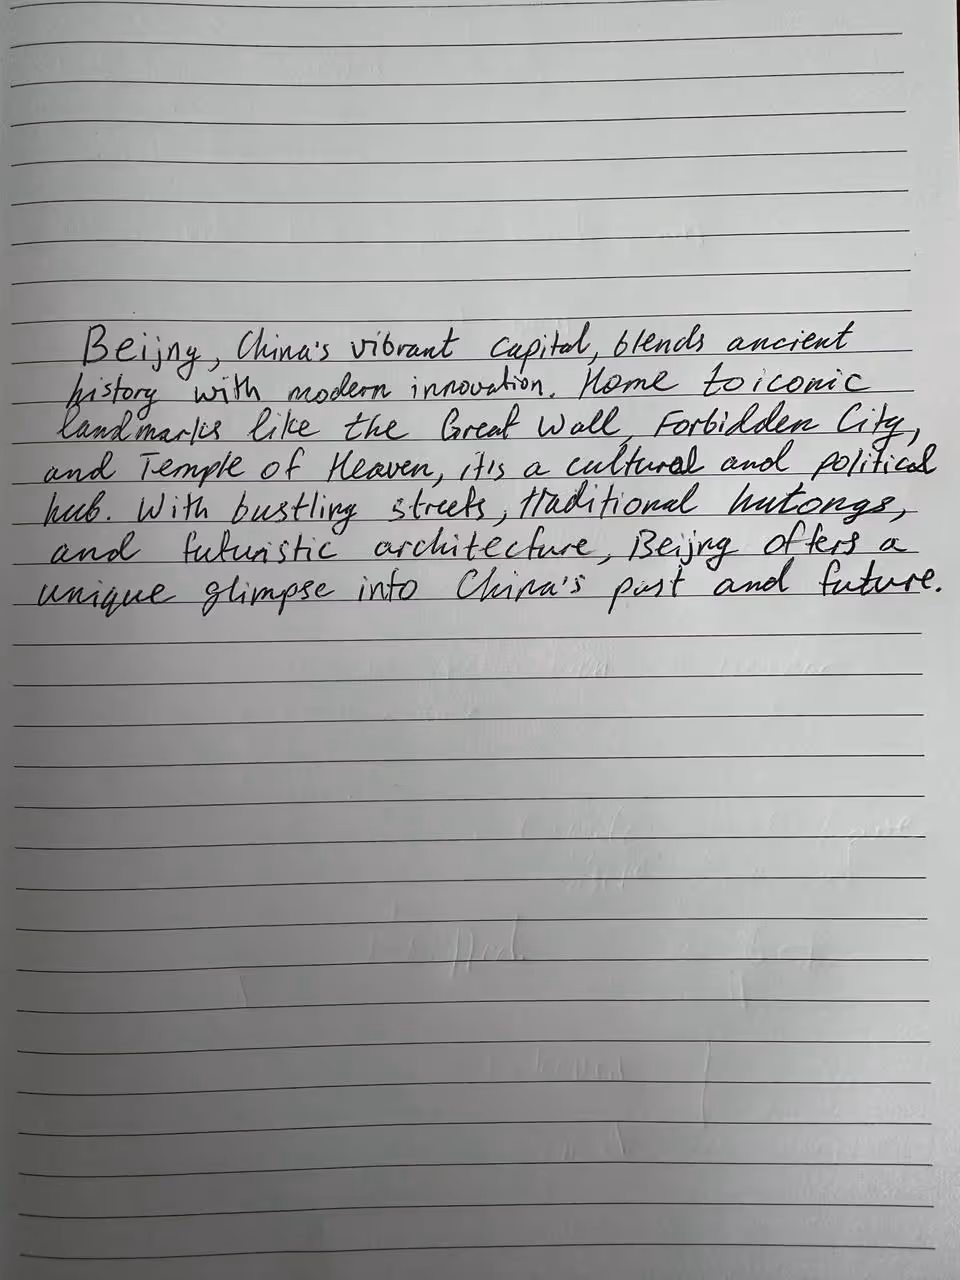 Beijng, China's vibrant capital, blends ancient
history with modern innovation. Home to iconic
landmarks like the Great Wall, Forbidden City,
and Temple of Heaven, it's a cultural and political
hub. With bustling streets, traditional hutongs,
and futuristic architecture, Beijng offers a
unique glimpse into China's past and future.